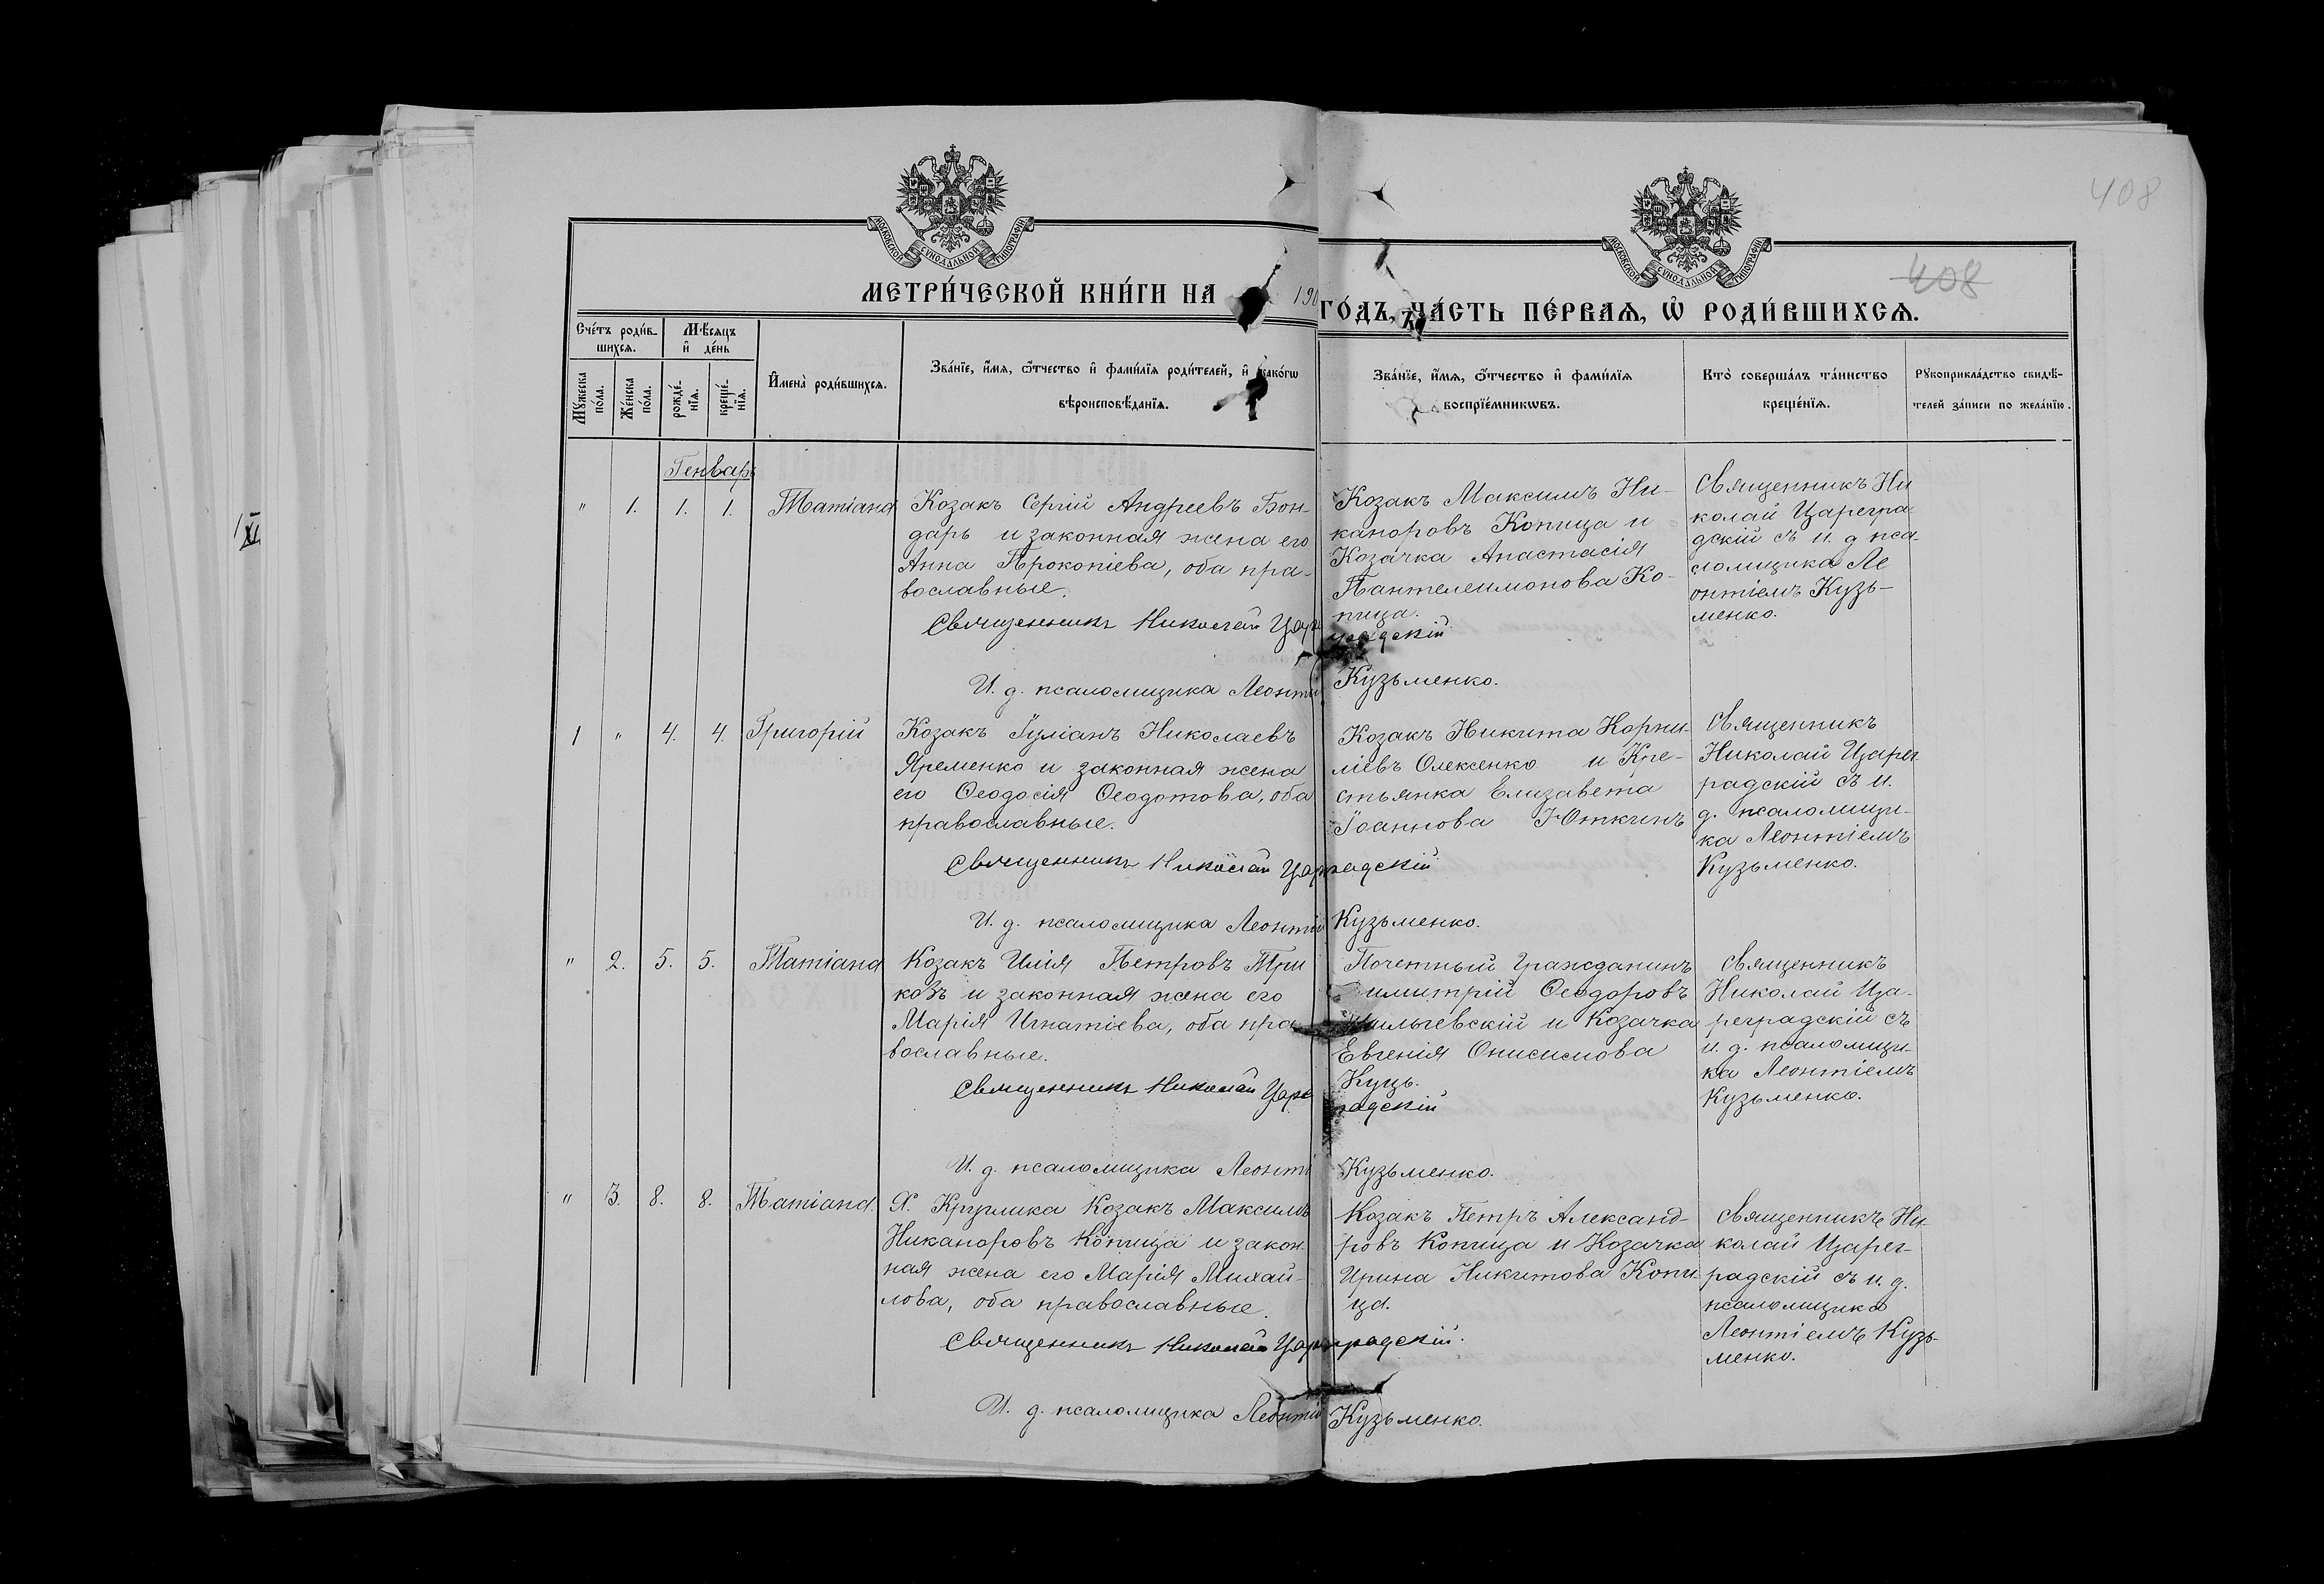 408
408
МОСКОВСКОЙ СѴНОДАЛЬНОЙ ТИПОГРАФІИ
МОСКОВСКОЙ СѴНОДАЛЬНОЙ ТИПОГРАФІИ
МЕТРИ́ЧЕСКОЙ КНИ́ГИ НА 190
ГО́ДЪ, ЧА́СТЬ ПЕ́РВАѦ, Ѡ҆ РОДИ́ВШИХСѦ.
Сче́тъ роди́в-
шихсѧ.
Мѣ́сѧцъ
и҆ де́нь
Мꙋ́жеска
по́ла.
Же́нска
по́ла.
рожде́-
нїѧ.
креще́-
нїѧ.
И҆мена̀ роди́вшихсѧ.
Зва́нїе, и҆́мѧ, ѻ҆́тчество и҆ фами́лїѧ роди́телей, и҆ како́гѡ
вѣроисповѣ́данїѧ.
Зва́нїе, и҆́мѧ, ѻ҆́тчество и҆ фами́лїѧ
воспрїе́мникѡвъ.
Кто̀ соверша́лъ та́инство
креще́нїѧ.
Рꙋкоприкла́дство свидѣ́-
телей за́писи по жела́нїю.
Генварь
" 1. 1. 1. Татіана
Козакъ Сергій Андреевъ Бон-
дарь и законная жена его
Анна Прокопіева, оба пра-
вославные.
Козакъ Максимъ Ни-
каноровъ Копица и
Козачка Анастасія
Пантелеимонова Ко-
пица.
Священникъ Ни
колай Царегра
дскій съ и. д пса-
ломщика Ле
онтіемъ Кузь-
менко.
Священникъ Николай Цареградскій
И. д. псаломщика Леонтій Кузьменко.
1 " 4. 4. Григорій
Козакъ Іуліанъ Николаевъ
Яременко и законная жена
его Ѳеодосія Ѳеодотова, оба
православные.
Козакъ Никита Корни-
ліевъ Олексенко и Кре-
стьянка Елизавета
Іоаннова Юткинъ
Священникъ
Николай Царег
радскій съ и.
д. псаломщи-
ка Леонтіемъ
Кузьменко.
Священникъ Николай Цареградскій
И. д. псаломщика Леонтій Кузьменко.
" 2. 5. 5. Татіана
Козакъ Илія Петровъ Три
козъ и законная жена его
Марія Игнатіева, оба пра
вославные.
Почетный Гражданинъ
имитрій Ѳеодоровъ
и Козачка
Евгенія Онисимова
Куць.
Священникъ
Николай Ца-
реградскій съ
и. д. псаломщи-
ка Леонтіемъ
Кузьменко.
Священникъ Николай Цареградскій
И. д. псаломщика Леонті Кузьменко.
" 3. 8. 8. Татіана.
Х. Круглика Козакъ Максимъ
Никаноровъ Копица и закон-
ная жена его Марія Михай-
лова, оба православные.
Козакъ Петръ Александ-
ровъ Копица и Козачка
Ирина Никитова Копи
ца.
Священникъ Ни
колай Царег-
радскій съ и. д.
псаломщика
Леонтіемъ Кузь-
менко.
Священникъ Николай Цареградскій.
И. д. псаломщика Леонтій Кузьменко.